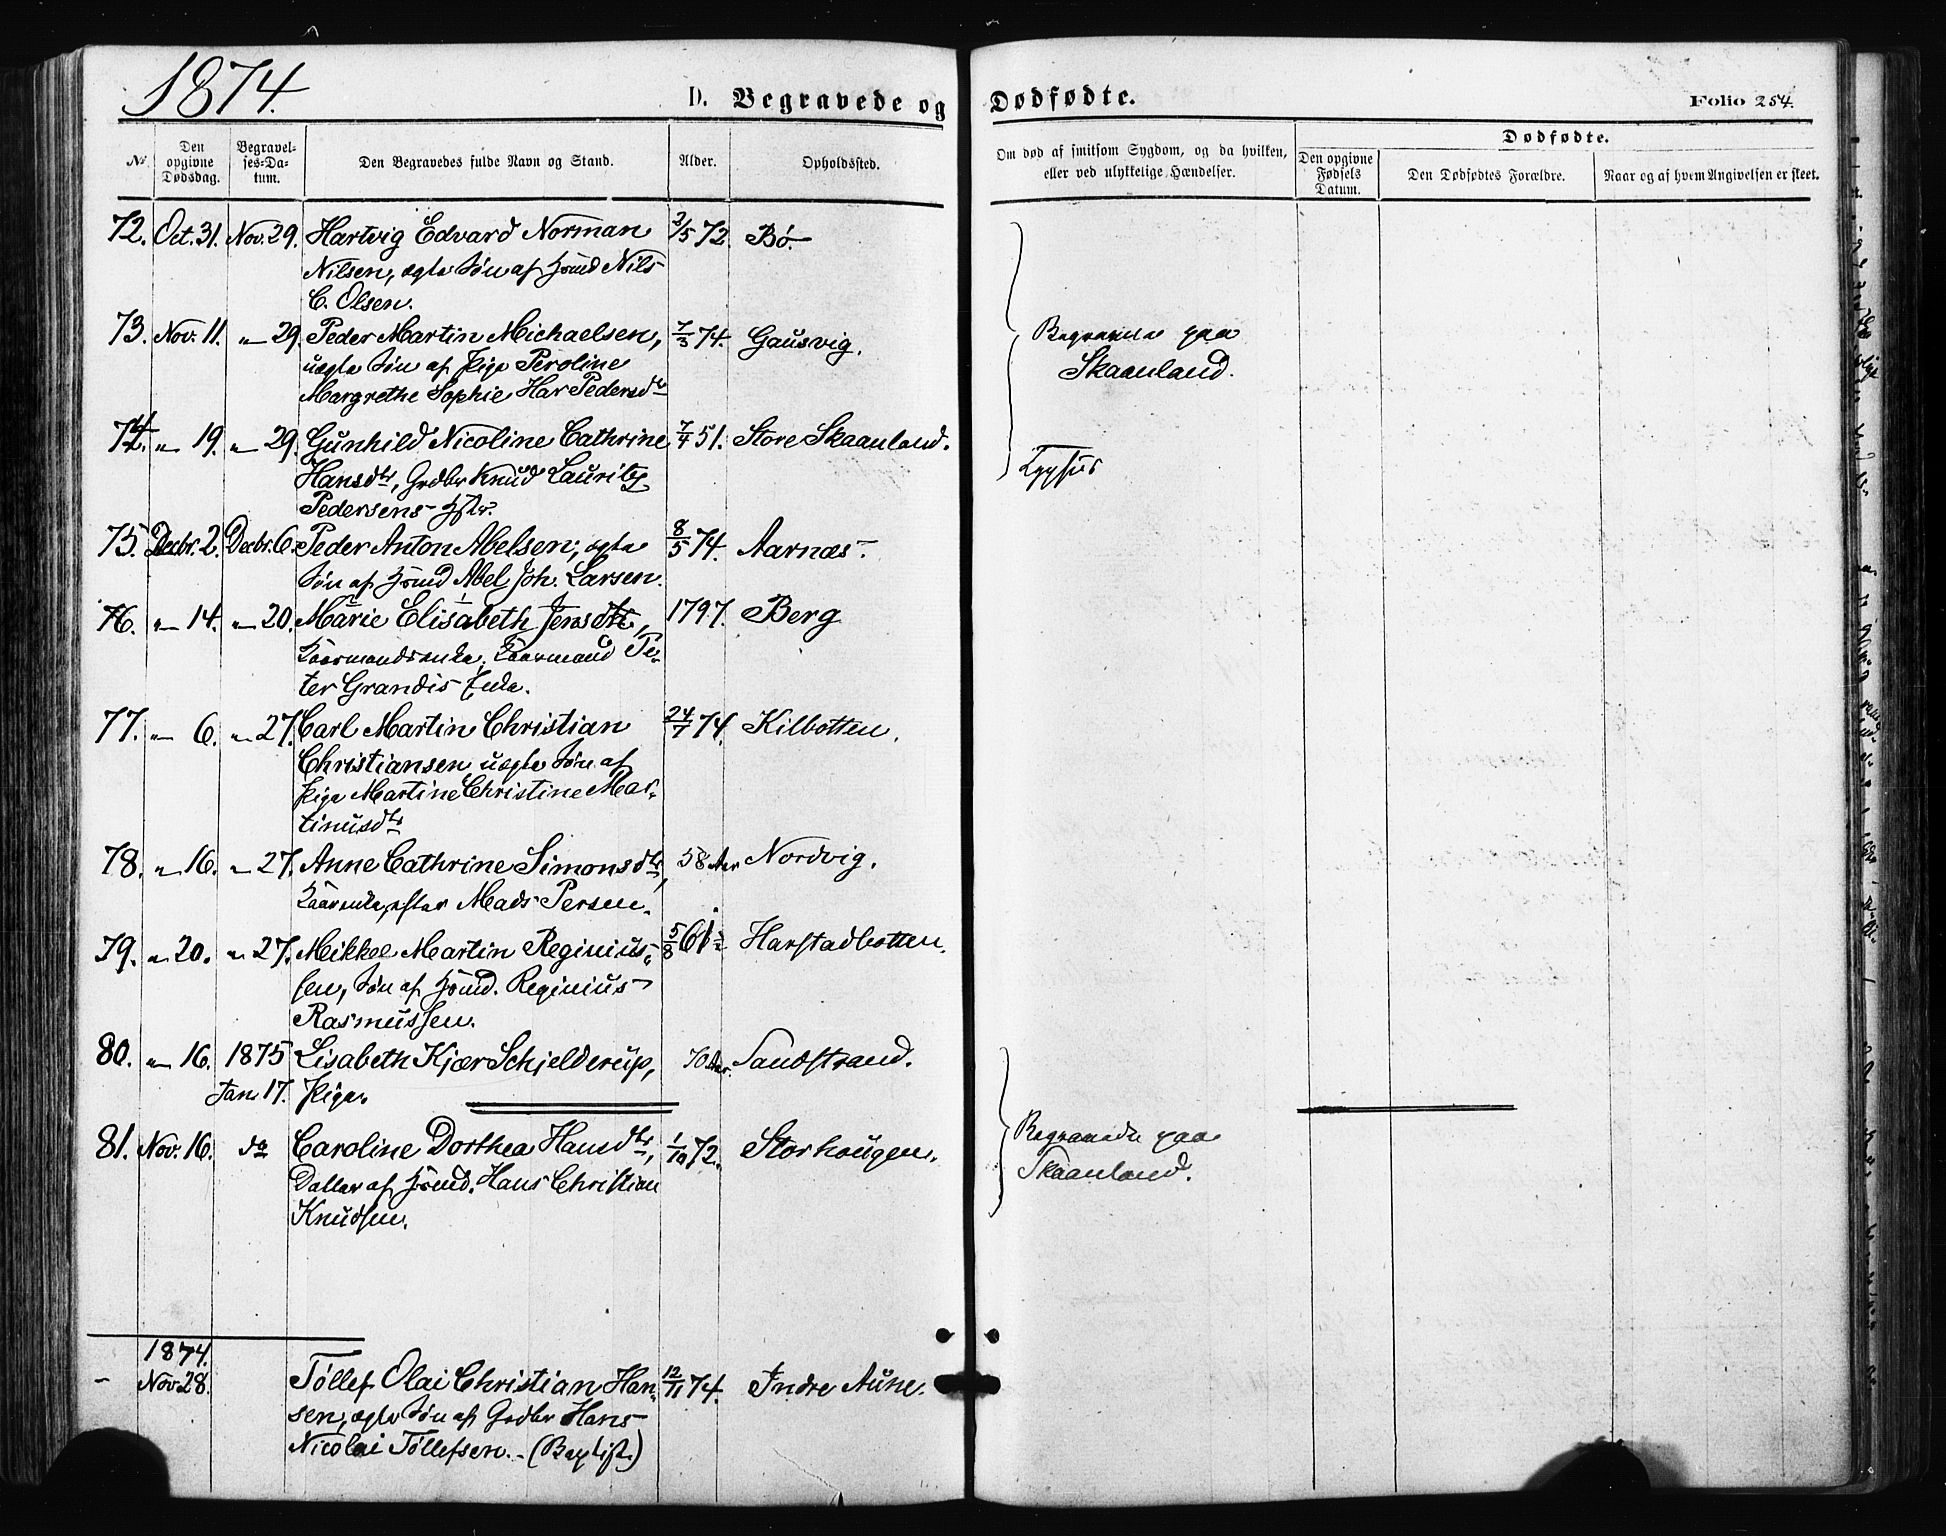 1874.
D. Begravede og Dødfødte.
Folio 254.
No
Den opgivne Dødsdag.
Begravelses-Datum.
Den Begravedes fulde Navn og Stand.
Alder.
Opholdssted.
Om død af smitsom Sygdom, og da hvilken, eller ved ulykkelige Hændelser.
Dødfødte.
Den opgivne Fødsels Datum.
Den Dødfødtes Forældre.
Naar og af hvem Angivelsen er skeet.
72. Oct. 31. Nov. 29. Hartvig Edvard Norman 2/5 72. Bø.
Nilsen, ægte Søn af Hsmd Nils
C. Olsen.
73. Nov. 11. " 29. Peder Martin Michaelsen, 7/3 74. Gausvig. Begravede paa
uægte Søn af Pige Peroline Skaanland.
Margrethe Sophie Har Pedersdtr
74. " 19. " 29. Gunhild Nicoline Cathrine 7/4 51. Store Skaanland.
Hansdtr, Grdbr Knud Lauritz Typhus
Pedersens Hstr.
75. Decbr. 2. Decbr. 6. Peder Anton Abelsen, ægte 8/5 74. Aarnæs.
Søn af Hsmd Abel Joh. Larsen.
76. " 14. " 20. Marie Elisabeth Jensdtr, 1797. Berg
Kaarmandsenke, Kaarmand Pe-
ter Grandis Enke.
77. " 6. " 27. Carl Martin Christian 24/7 74. Kilbotten.
Christiansen uægte Søn af
Pige Martine Christine Mar-
tinusdtr
78. " 16. " 27. Anne Cathrine Simonsdtr, 58 Aar Nordvig.
Kaarenke efter Mads Persen.
79. " 20. " 27. Mikkel Martin Reginius- 5/8 61 Harstadbotten.
sen, Søn af Hsmd. Reginius
Rasmussen.
80. " 16. 1875 Lisabeth Kjær Schjelderup, 70 Aar. Sandstrand.
Jan. 17. Pige.
81. Nov. 16. do Caroline Dorthea Hansdtr, 1/10 72. Storhougen. Begravede paa
Datter af Hsmd. Hans Christian Skaanland.
Knudsen.
1874.
- Nov 28. Tollef Olai Christian Han- 12/11 74. Indre Aune.
sen, ægte Søn af Grdbr Hans
Nicolai Tollefsen. - (Baptist)